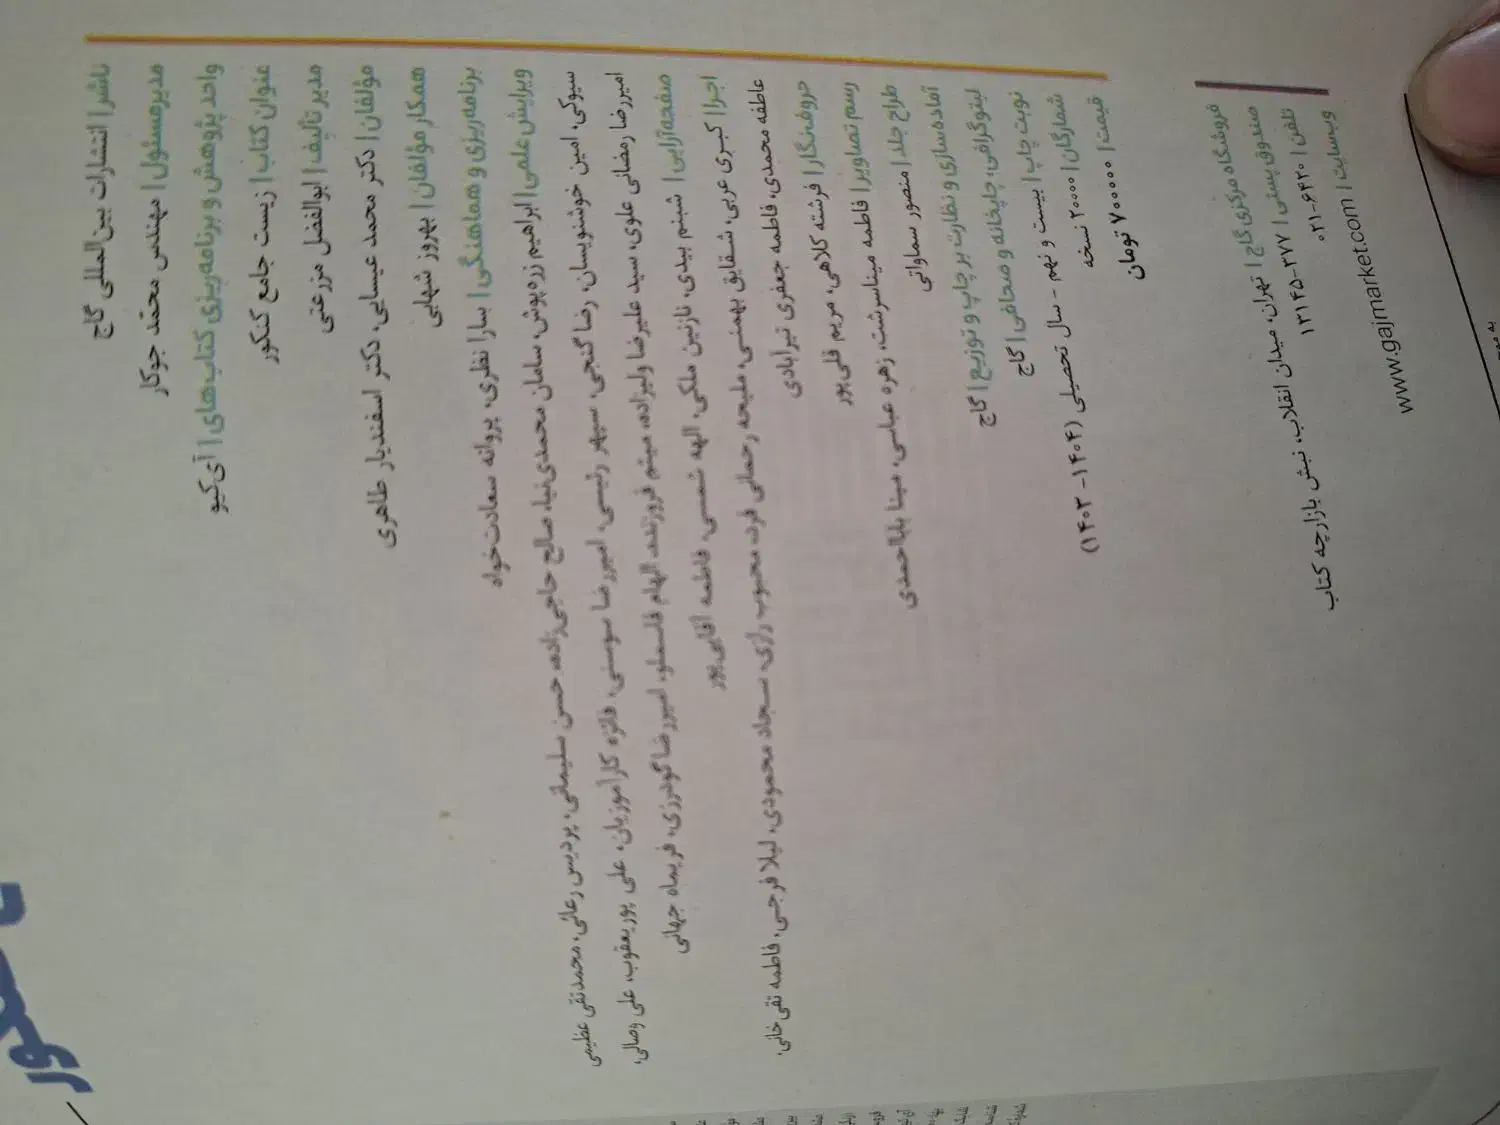 ناشر | انتشارات بین‌المللی گاج
مدیر مسئول | مهندس محمّد جوکار
واحد پژوهش و برنامه‌ریزی کتاب‌های | آی‌کیو
عنوان کتاب | زیست جامع کنکور
مدیر تألیف | ابوالفضل مزرعتی
مؤلفان | دکتر محمد عیسایی، دکتر اسفندیار طاهری
همکار مؤلفان | بهروز شهابی
برنامه‌ریزی و هماهنگی | سارا نظری، پروانه سعادت‌خواه
ویرایش علمی | ابراهیم زره‌پوش، سامان محمدی‌نیا، صالح حاجی‌زاده، حسن سلیمانی، پردیس رعائی، محمدتقی عظیمی
سیوکی، امین خوشنویسان، رضا گنجی، سپهر رئیسی، امیررضا سوسنی، فائزه کارآموزیان، علی پوریعقوب، علی وصالی،
امیررضا رمضانی علوی، سید علیرضا ولیزاده، میثم فروزنده، الهام قاسملو، امیررضا گودرزی، فریماه جهانی
صفحه‌آرایی | شبنم بیدی، نازنین ملکی، الهه شمسی، فاطمه آقایی‌پور
اجرا | کبری عربی، شقایق بهمنی، ملیحه رحمانی فرد، محبوب رازی، سجاد محمودی، لیلا فرجی، فاطمه نقی خانی،
عاطفه محمدی، فاطمه جعفری تیرآبادی
حروفنگار | فرشته کلاهی، مریم قلی‌پور
رسم تصاویر | فاطمه میناسرشت، زهره عباسی، مینا بابااحمدی
طراح جلد | منصور سماواتی
آماده‌سازی و نظارت بر چاپ و توزیع | گاج
لیتوگرافی، چاپخانه و صحافی | گاج
نوبت چاپ | بیست و نهم - سال تحصیلی (۱۴۰۴-۱۴۰۳)
شمارگان | ۲۰۰۰۰ نسخه
قیمت | ۷۰۰۰۰۰ تومان
فروشگاه مرکزی گاج | تهران، میدان انقلاب، نبش بازارچه کتاب
صندوق پستی | ۱۳۱۴۵-۲۷۷
تلفن | ۰۲۱-۶۴۲۰
وب‌سایت | www.gajmarket.com